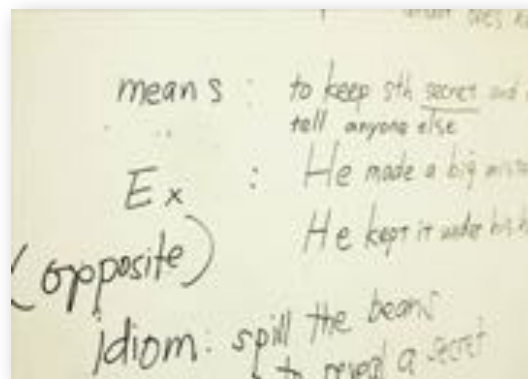 means : to keep sth secret and
tell anyone else
Ex : He made a big
He kept it under his
(opposite)
idiom: spill the beans
to reveal a secret